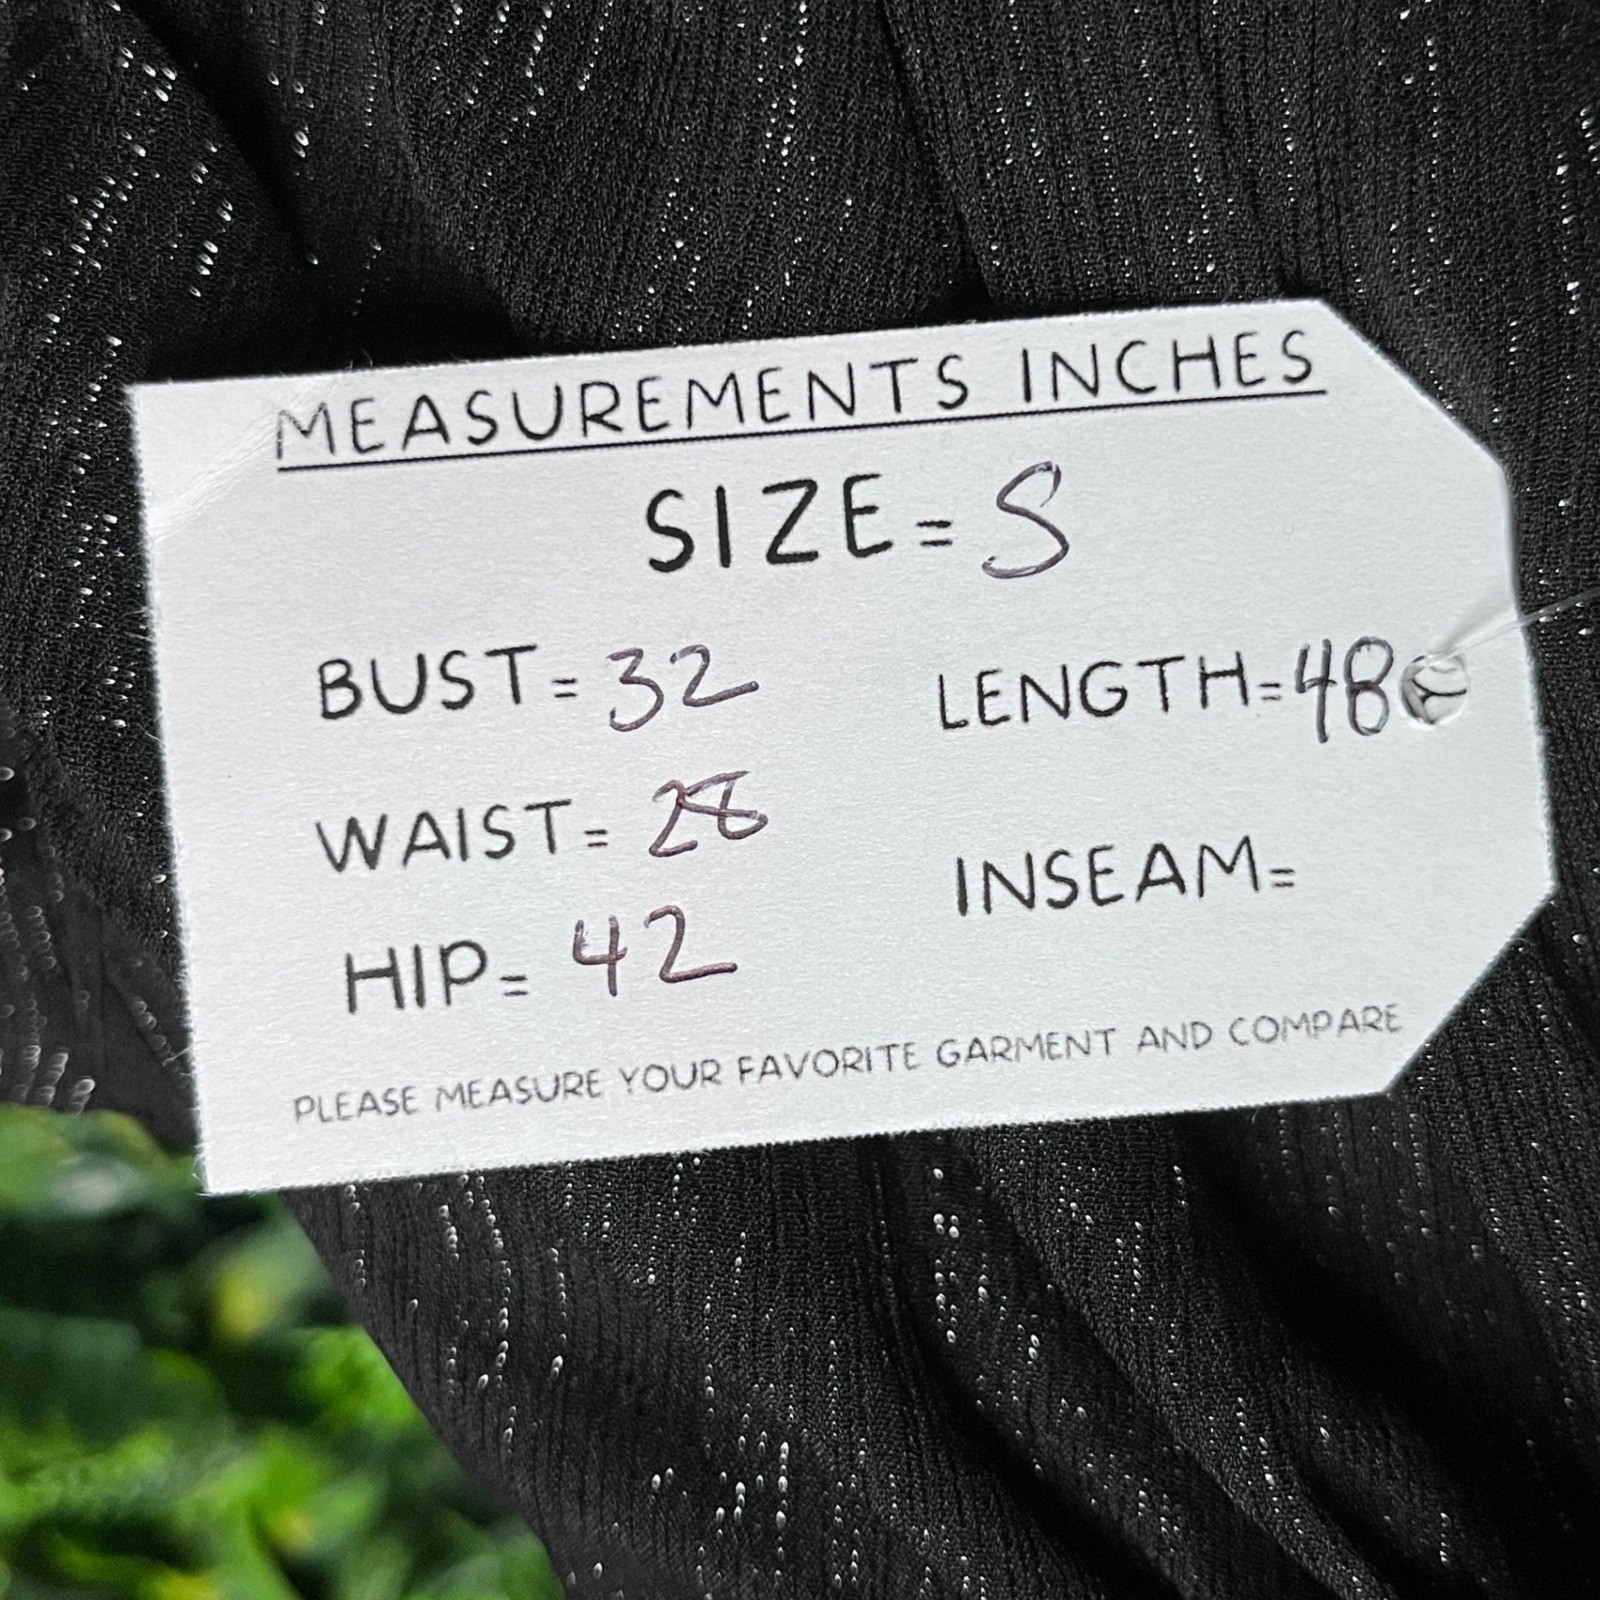 MEASUREMENTS INCHES
SIZE= S
BUST= 32
LENGTH=48
WAIST= 28
INSEAM=
HIP= 42
PLEASE MEASURE YOUR FAVORITE GARMENT AND COMPARE